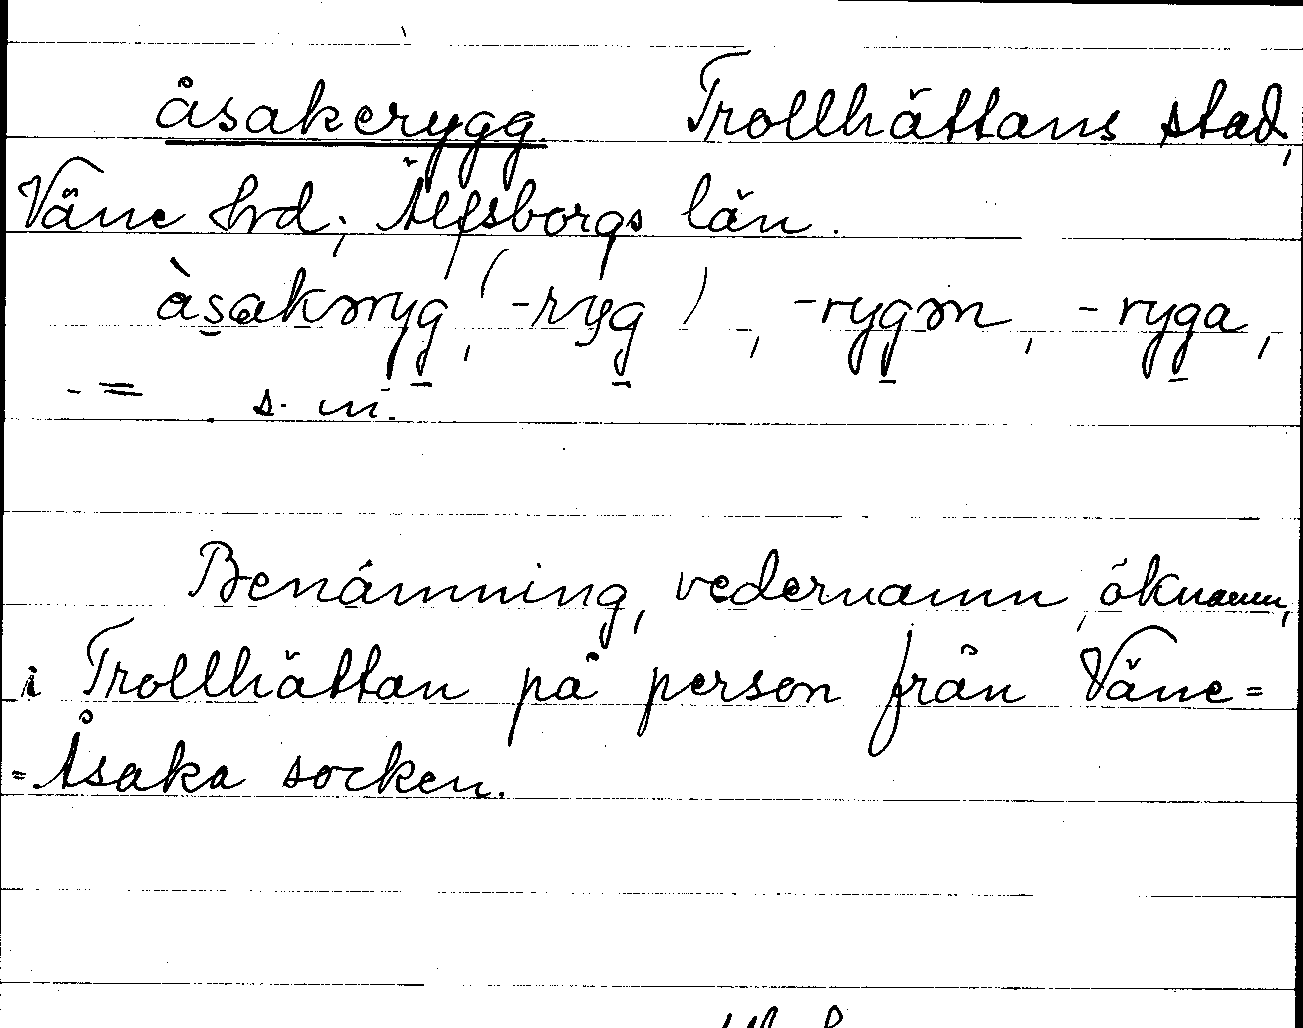 åsakerygg Trollhättans stad,
Väne hrd; Älfsborgs län.
àsakərryg, (-ryg), -rygən, -ryga,
-= s. m.
Benämning, vedernamn, öknamn,
i Trollhättan på person från Väne=
=Åsaka socken.